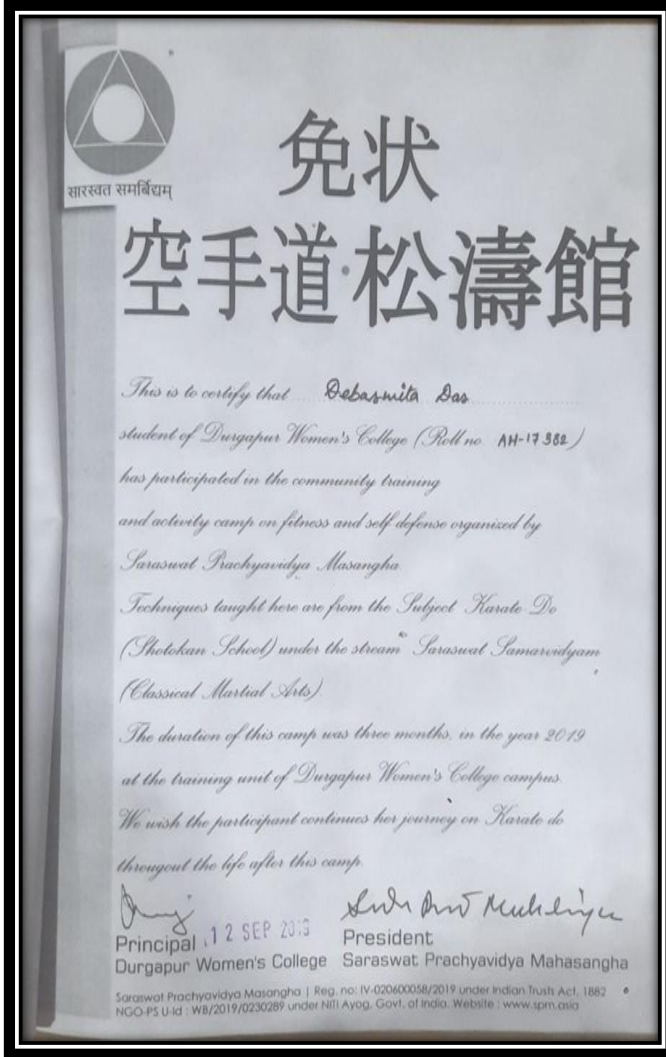 सारस्वत समर्बिद्यम्
免状
空手道・松濤館
This is to certify that Debasmita Das
student of Durgapur Women's College (Roll no. AH-17382)
has participated in the community training
and activity camp on fitness and self defense organized by
Saraswat Prachyavidya Masangha
Techniques taught here are from the Subject Karate-Do
(Shotokan School) under the stream Saraswat Samarvidyam
(Classical Martial Arts).
The duration of this camp was three months, in the year 2019
at the training unit of Durgapur Women's College campus.
We wish the participant continues her journey on Karate do
througout the life after this camp.
Principal 12 SEP 2019 President
Durgapur Women's College Saraswat Prachyavidya Mahasangha
Saraswat Prachyavidya Masangha | Reg. no: IV-020600058/2019 under Indian Trusts Act, 1882
NGO-PS U-Id : WB/2019/0230289 under NITI Ayog, Govt. of India. Website : www.spm.asia